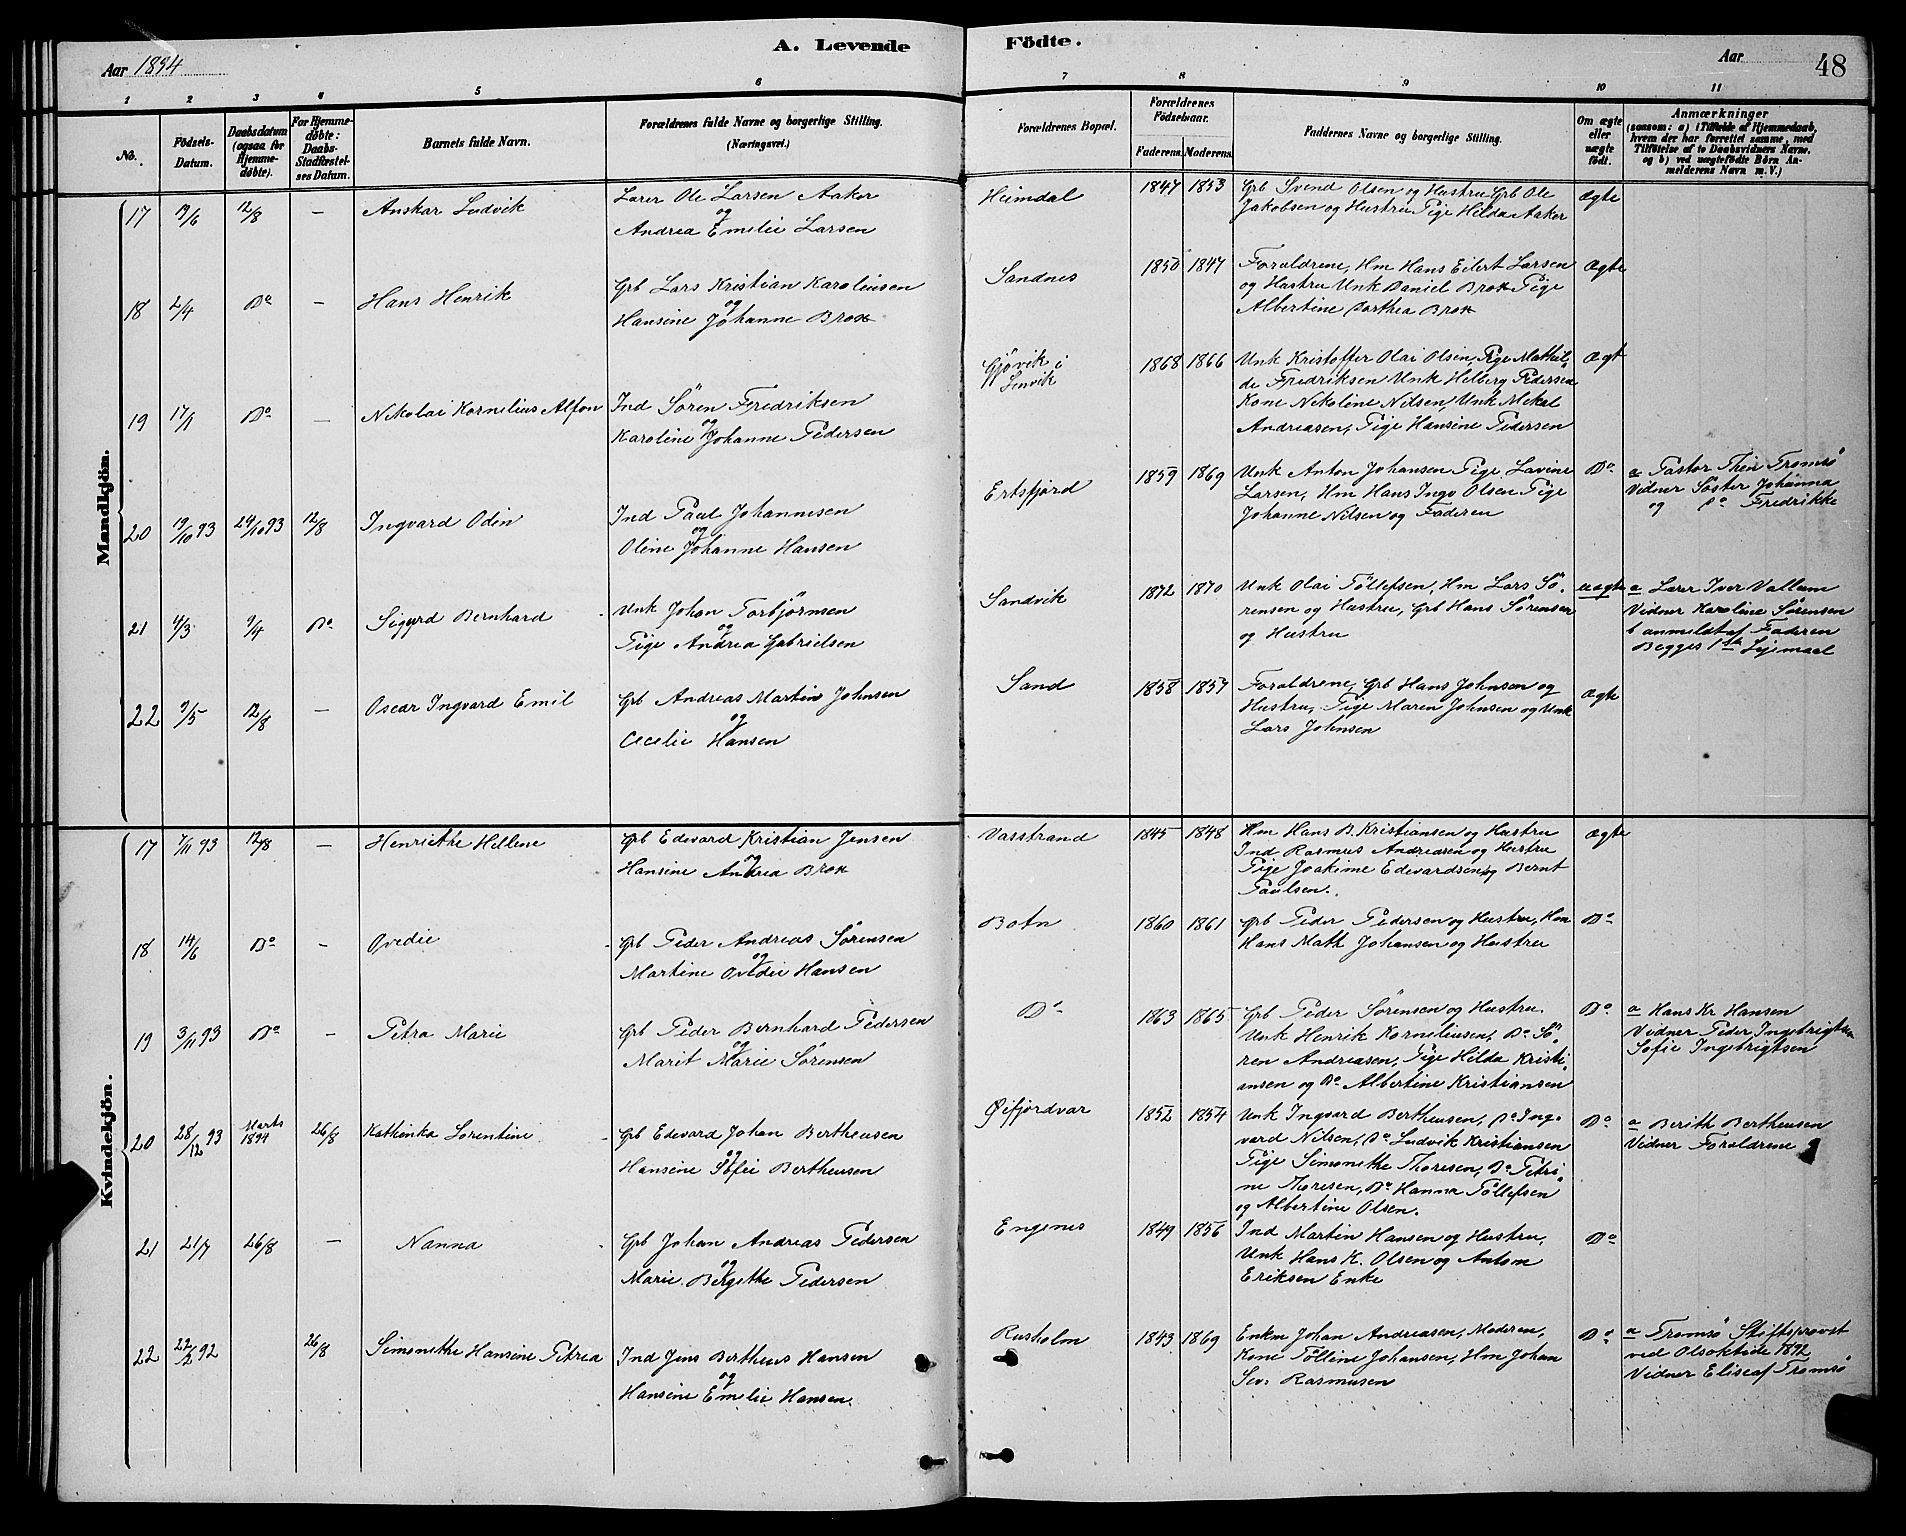 A. Levende Födte.
Aar 1894
Aar
48
1 2 3 4 5 6 7 8 9 10 11
No.
Födsels-Datum.
Daabsdatum (ogsaa for Hjemmedøbte).
For Hjemmedøbte: Daabs-Stadfæstelses Datum.
Barnets fulde Navn.
Forældrenes fulde Navne og borgerlige Stilling. (Næringsvei.)
Forældrenes Bopæl.
Forældrenes Födselsaar.
Faderens. Moderens.
Faddernes Navne og borgerlige Stilling.
Om ægte eller uægte født.
Anmærkninger
(saasom: a) i Tilfælde af Hjemmedaab,
hvem der har forrettet samme, med
Tilføielse af to Daabsvidners Navne,
og b) ved uægtefødte Børn Anmelderens Navn m. V.)
Mandkjön.
17 19/6 12/8 — Anskar Ludvik
Lærer Ole Larsen Aaker
og
Andrea Emelie Larsen
Heimdal 1847 1853
Grb Svend Olsen og Hustru Grb Ole
Jakobsen og Hustru Pige Hilda Aaker
Ægte
18 2/4 Do — Hans Henrik
Grb Lars Kristian Karoliusen
og
Hansine Johanne Brox
Sandnes 1850 1847
Forældrene, Hm Hans Eilert Larsen
og Hustru Unk Daniel Brox Pige
Albertine Dorthea Brox
Ægte
19 17/1 Do — Nikolai Kornelius Alfon
Ind Sören Fredriksen
og
Karoline Johanne Pedersen
Gjövik i
Lenvik
1868 1866
Unk Kristoffer Olai Olsen, Pige Mathil
de Fredriksen Unk Helberg Pedersen
Kone Nikoline Nilsen, Unk Mekal
Andreasen, Pige Hansine Pedersen
Ægt
20 19/10 93 24/10 93 12/8 Ingvard Odin
Ind Paul Johannesen
og
Oline Johanne Hansen
Ersfjord 1859 1869
Unk Anton Johansen Pige Lavine
Larsen, Hm Hans Ingv Olsen Pige
Johanne Nilsen og Faderen
Do
a Pastor Tromsö
Vidner Söster Johanna
og Do Fredrikke
21 4/3 9/4 Do Sigurd Bernhard
Unk Johan Torbjörnsen
og
Pige Andrea Gabrielsen
Sandvik 1872 1870
Unk Olai Töllefsen, Hm Lars Sö
rensen og Hustru, Grb Hans Sörensen
og Hustru
uægte
a Lærer Iver Vallum
Vidner Karoline Sörensen
b anmeldt af Faderen
Begges 1ste Lejemaal
22 9/5 12/8 — Oscar Ingvard Emil
Grb Andreas Martin Johnsen
og
Cecelie Hansen
Sand 1858 1857
Forældrene, Grb Hans Johnsen og
Hustru, Pige Maren Johnsen og Unk
Lars Johnsen
Ægte
Kvindekjön.
17 7/11 93 12/8 — Henriethe Hellene
Grb Edevard Kristian Jensen
og
Hansine Andrea Brox
Vasstrand 1845 1848
Hm Hans B. Kristiansen og Hustru
Ind Rasmus Andreasen og Hustru
Pige Joakime Edevardsen og Bernt
Paulsen.
Ægte
18 14/6 Do — Ovedie
Grb Peder Andreas Sörensen
og
Martine Ovedie Hansen
Botn 1860 1861
Grb Peder Pedersen og Hustru, Hm
Hans Math Johansen og Hustru
Do
19 3/11 93 Do — Petra Marie
Grb Peder Bernhard Pedersen
og
Marit Marie Sörensen
Do 1863 1865
Grb Peder Sörensen og Hustru.
Unk Henrik Korneliusen, Do Sö
ren Andreasen, Pige Hilda Kristi
ansen og Do Albertine Kristiansen
Do
a Hans Kr Hansen
Vidner Peder Ingebrigtsen
Sofie Ingebrigtsen
20 28/12 93 Marts 1894 26/8 Kathinka Sorentine
Grb Edevard Johan Bertheusen
og
Hansine Sofie Bertheusen
Øifjordvær 1852 1854
Unk Ingvard Bertheusen, Do Ing
vard Nilsen, Do Ludvik Kristiansen
Pige Simonethe Thoresen, Do Petri
ne Thoresen, Do Hanna Töllefsen
og Albertine Olsen.
Do
a Berith Bertheusen
Vidner Forældrene
21 21/7 26/8 — Nanna
Grb Johan Andreas Pedersen
og
Marie Bergithe Pedersen
Engenes 1849 1856
Ind Martin Hansen og Hustru,
Unk Hans K. Olsen og Antom
Eriksen Enke
Do
22 22/2 92 26/8 Simonethe Hansine Petrea
Ind Jens Bertheus Hansen
og
Hansine Emelie Hansen
Rusholm 1843 1869
Enkm Johan Andreasen, Moderen,
KoneÖlline Johansen, Hm Johan
Sev. Rasmusen
Do
a Tromsö Stiftsprovst
ved Olsoktide 1892
Vidner Elisaf Tromsö